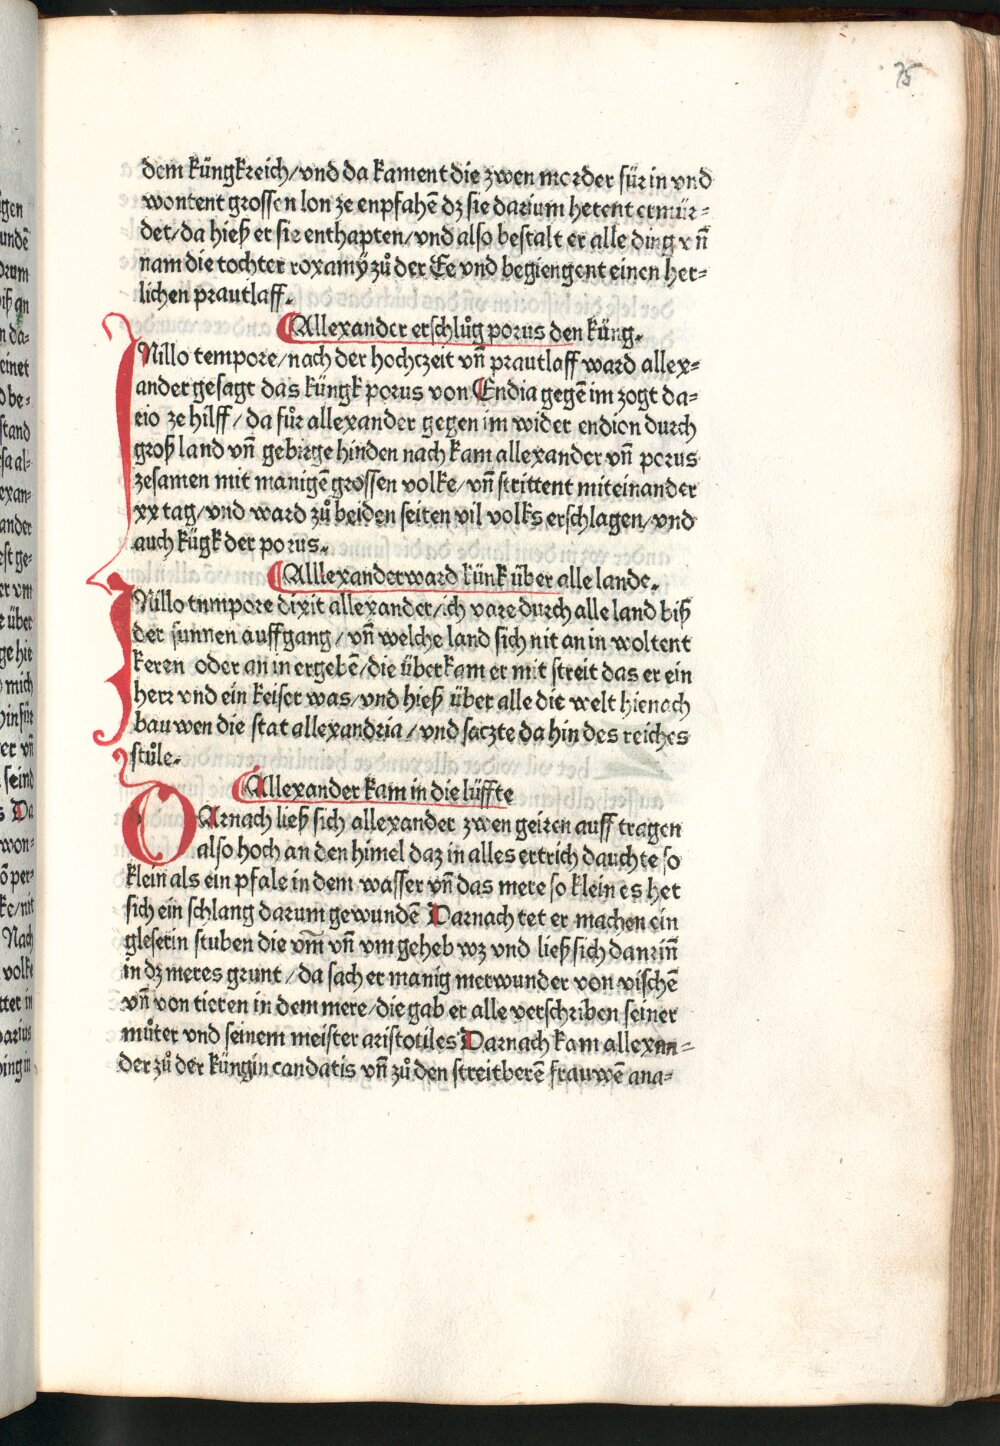 75
dem küngkreich/vnd da kament die zwen morder für in vnd
wontent grossen lon ze enpfahē dz sie darium hetent ermür⸗
det/da hieß er sie enthapten/vnd also bestalt er alle ding vn̄
nam die tochter roxamÿ zů der Ee vnd begiengent einen her⸗
lichen prautlaff.
Allexander erschlůg porus den küng.
INillo tempore/nach der hochczeit vn̄ prautlaff ward allex⸗
ander gesagt das küngk porus von Endia gegē im zogt da⸗
rio ze hilff/da fůr allexander gegen im wider endion durch
groß land vn̄ gebirge hinden nach kam allexander vn̄ porus
zesamen mit manigē grossen volke/vn̄ strittent miteinander
xx tag/vnd ward zů beiden seiten vil volks erschlagen/vnd
auch kügk der porus.
Alllexander ward künk über alle lande.
INillo tnmpore dixit allexander/ich vare durch alle land biß
der sunnen auffgang/vn̄ welche land sich nit an in woltent
keren oder an in ergebē/die überkam er mit streit das er ein
herr vnd ein keiser was/vnd hieß über alle die welt hienach
bauwen die stat allexandria/vnd saczte da hin des reiches
stůle.
Allexander kam in die lüffte
DArnach ließ sich allexander zwen geiren auff tragen
also hoch an den himel daz in alles ertrich dauchte so
klein als ein pfale in dem wasser vn̄ das mere so klein es het
sich ein schlang darum gewundē Darnach tet er machen ein
gleserin stuben die vm̄ vn̄ vm geheb wz vnd ließ sich danrin̄
in dz meres grunt/da sach er manig merwunder von vischē
vn̄ von tieren in dem mere/die gab er alle verschriben seiner
můter vnd seinem meister aristotiles Darnach kam allexan⸗
der zů der küngin candatis vn̄ zů den streitberē frauwē ana⸗